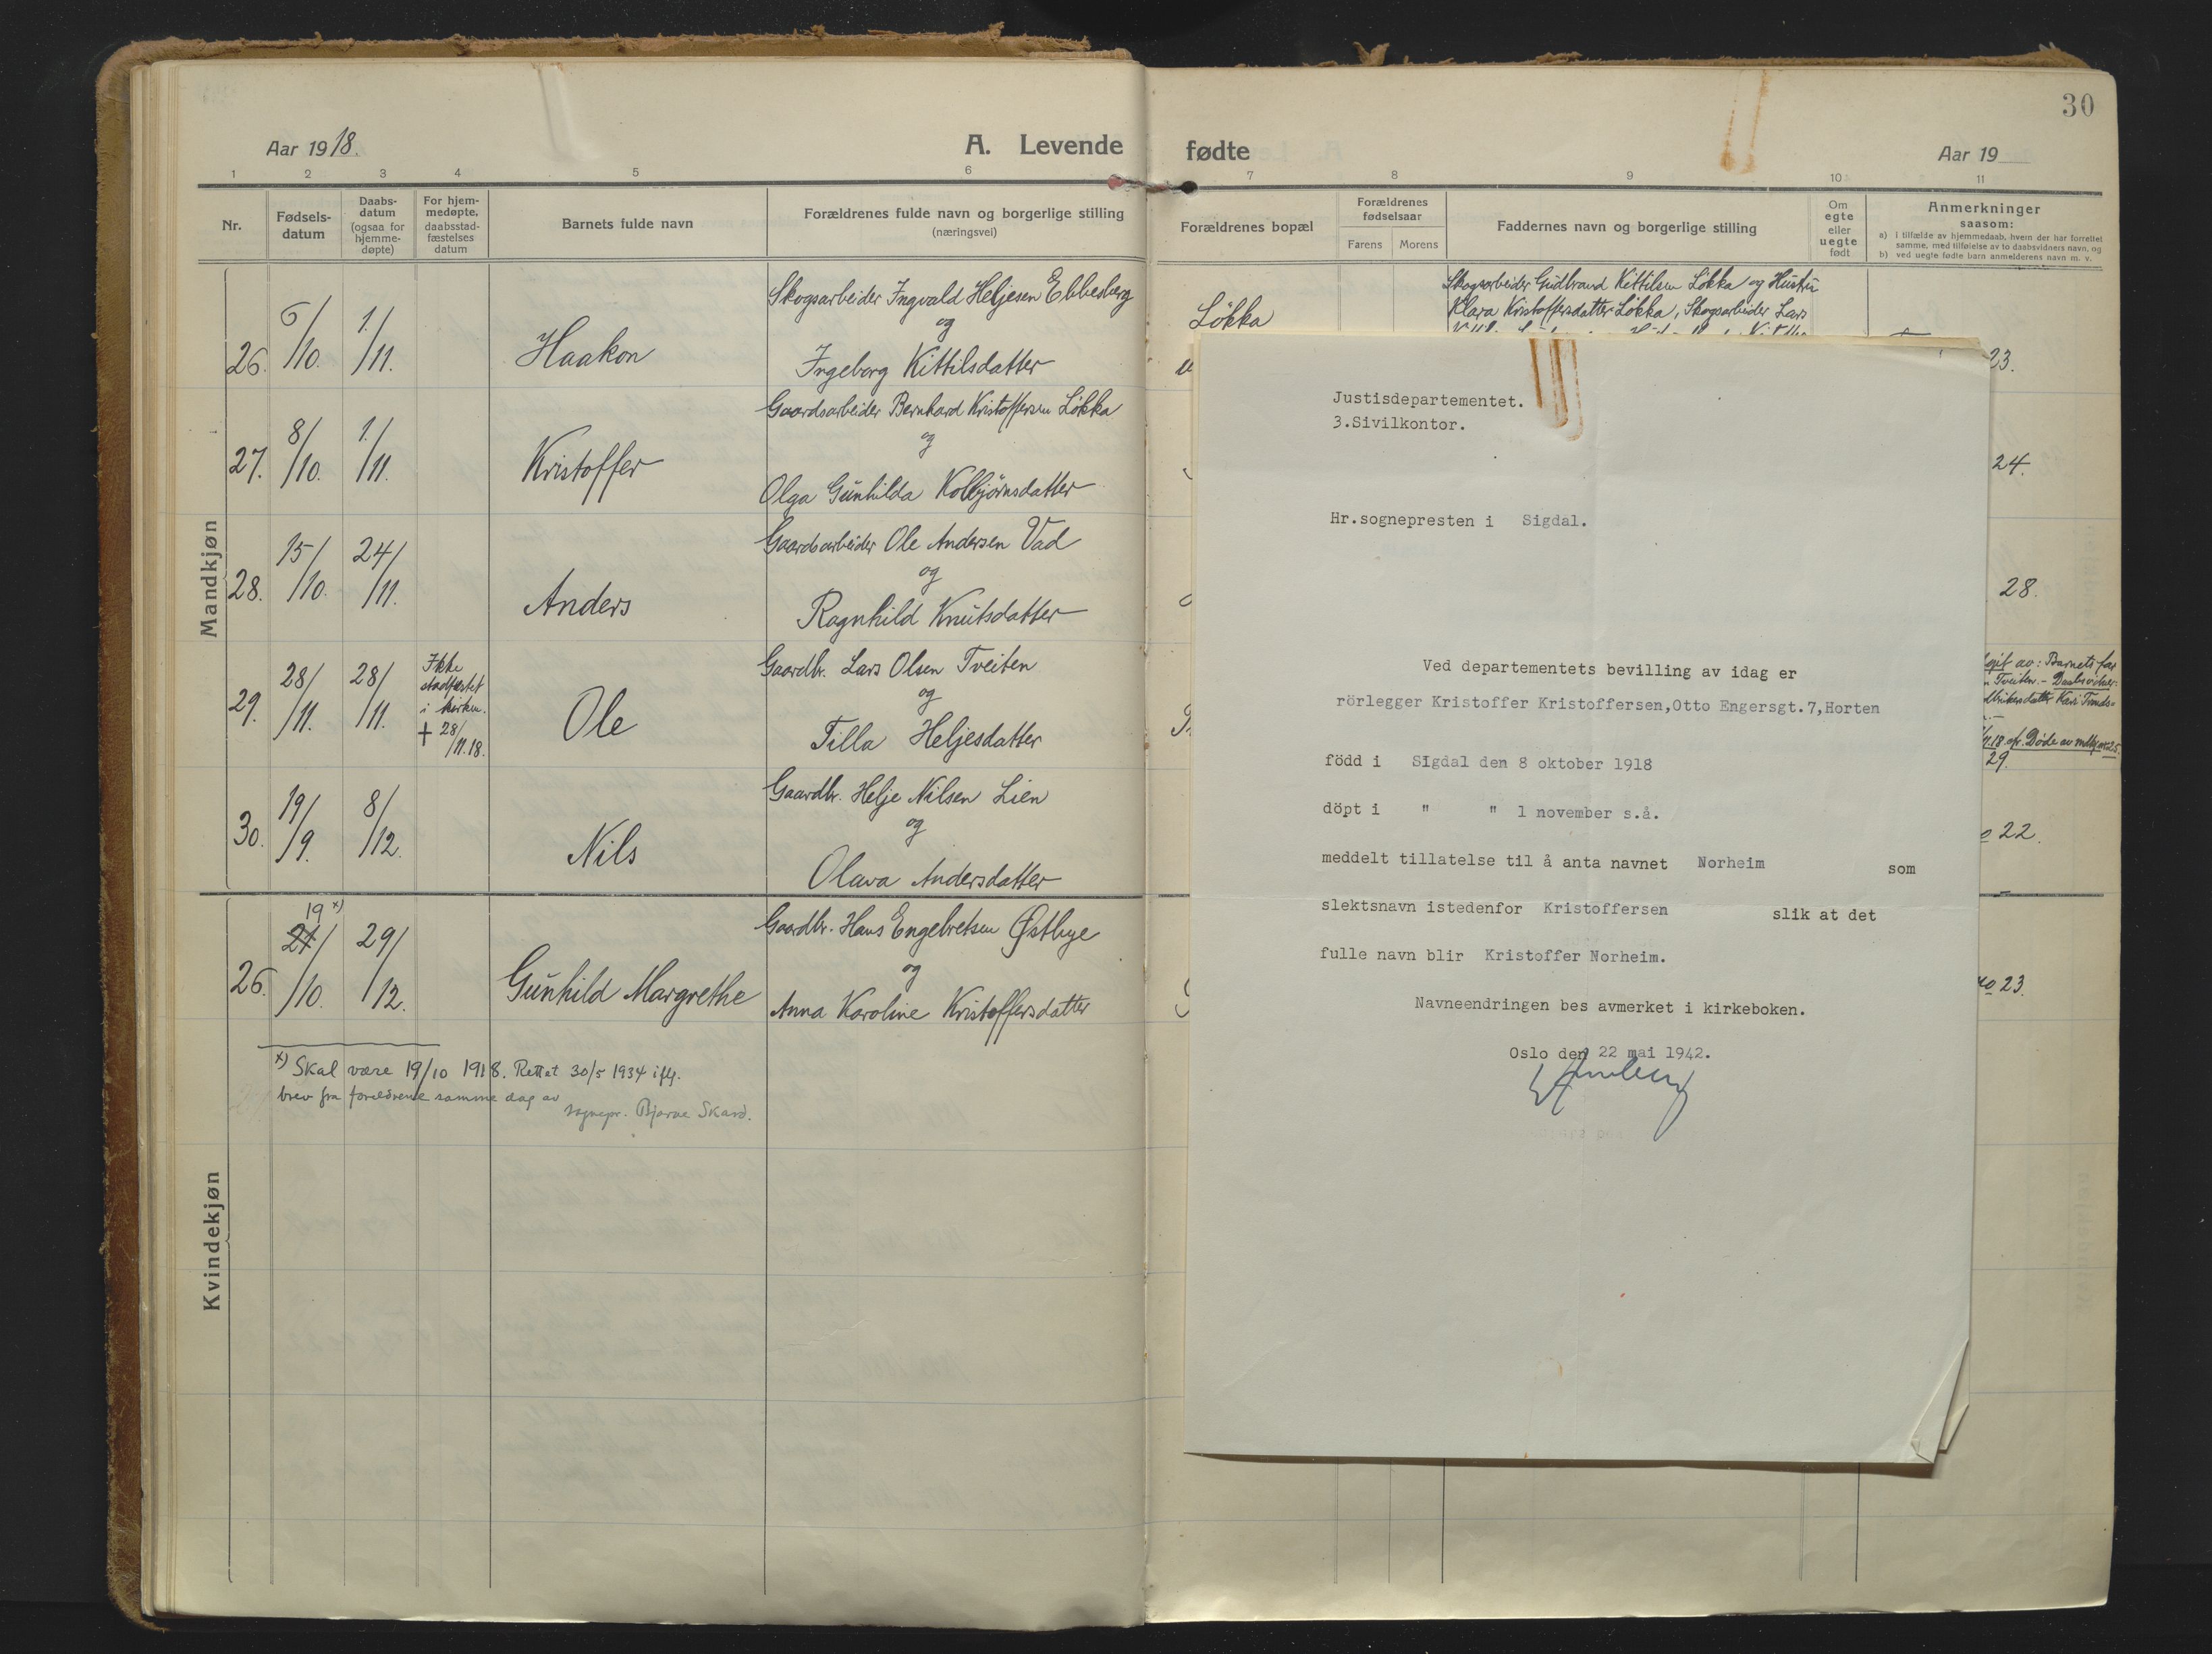 30
Aar 1918.
A. Levende
fødte
Aar 19
1 2 3 4 5 6 7 8 9 10 11
Nr.
Fødsels-
datum
Daabs-
datum
(ogsaa for
hjemme-
døpte)
For hjem-
medøpte,
daabsstad-
fæstelses
datum
Barnets fulde navn
Forældrenes fulde navn og borgerlige stilling
(næringsvei)
Forældrenes bopæl
Forældrenes
fødselsaar
Farens Morens
Faddernes navn og borgerlige stilling
Om
egte
eller
uegte
født
Anmerkninger
saasom:
a) I tilfælde av hjemmedaab, hvem der har forrettet
samme, med tilføielse av to daabsvidners navn, og
b) ved uegte fødte barn anmelderens navn m. v.
Mandkjøn
26. 6/10. 1./11. Haakon
Skogsarbeider Ingvald Heljesen Ebbesberg
og
Ingeborg Kittilsdatter
Løkka
Skogsarbeider Gudbrand Kittilsen Løkka og Hustru
Klara Kristoffersdatter Løkka, Skogsarbeider Lars
23.
27. 8/10. 1./11. Kristoffer
Gaardsarbeider Bernhard Kristoffersen Løkka
og
Olga Gunhilda Kolbjørnsdatter
24.
28. 15/10. 24/11. Anders
Gaardsarbeider Ole Andersen Vad
og
Ragnhild Knutsdatter
28.
29. 28/11. 28/11.
Ikke
stadfæstet
i kirken.
+ 28/11.18.
Ole
Gaardbr. Lars Olsen Tveiten
og
Tilla Heljesdatter
av: Barnets far
Tveiten. - Daabsvidner:
Kari Trods=
11.18. cfr. Døde av mdkj. nr 25.
29.
30. 19/9. 8/12. Nils
Gaardbr. Helje Nilsen Lien
og
Olava Andersdatter
22.
Kvindekjøn
19 x)
26. 21/10. 29/12. Gunhild Margrethe
Gaardbr. Hans Engebretsen Østbye
og
Anna Karoline Kristoffersdatter
no 23.
x) Skal være 19/10 1918. Rettet 30/5 1934 iflg.
brev fra foreldrene samme dag av
sognepr. Bjarne Skard.
Justisdepartementet.
3.Sivilkontor.
Hr.sognepresten i Sigdal.
Ved departementets bevilling av idag er
rörlegger Kristoffer Kristoffersen,Otto Engersgt.7,Horten
född i SIgdal den 8 oktober 1918
döpt i " " 1 november s.å.
meddelt tillatelse til å anta navnet Norheim som
slektsnavn istedenfor Kristoffersen slik at det
fulle navn blir Kristoffer Norheim.
Navneendringen bes avmerket i kirkeboken.
Oslo den 22 mai 1942.